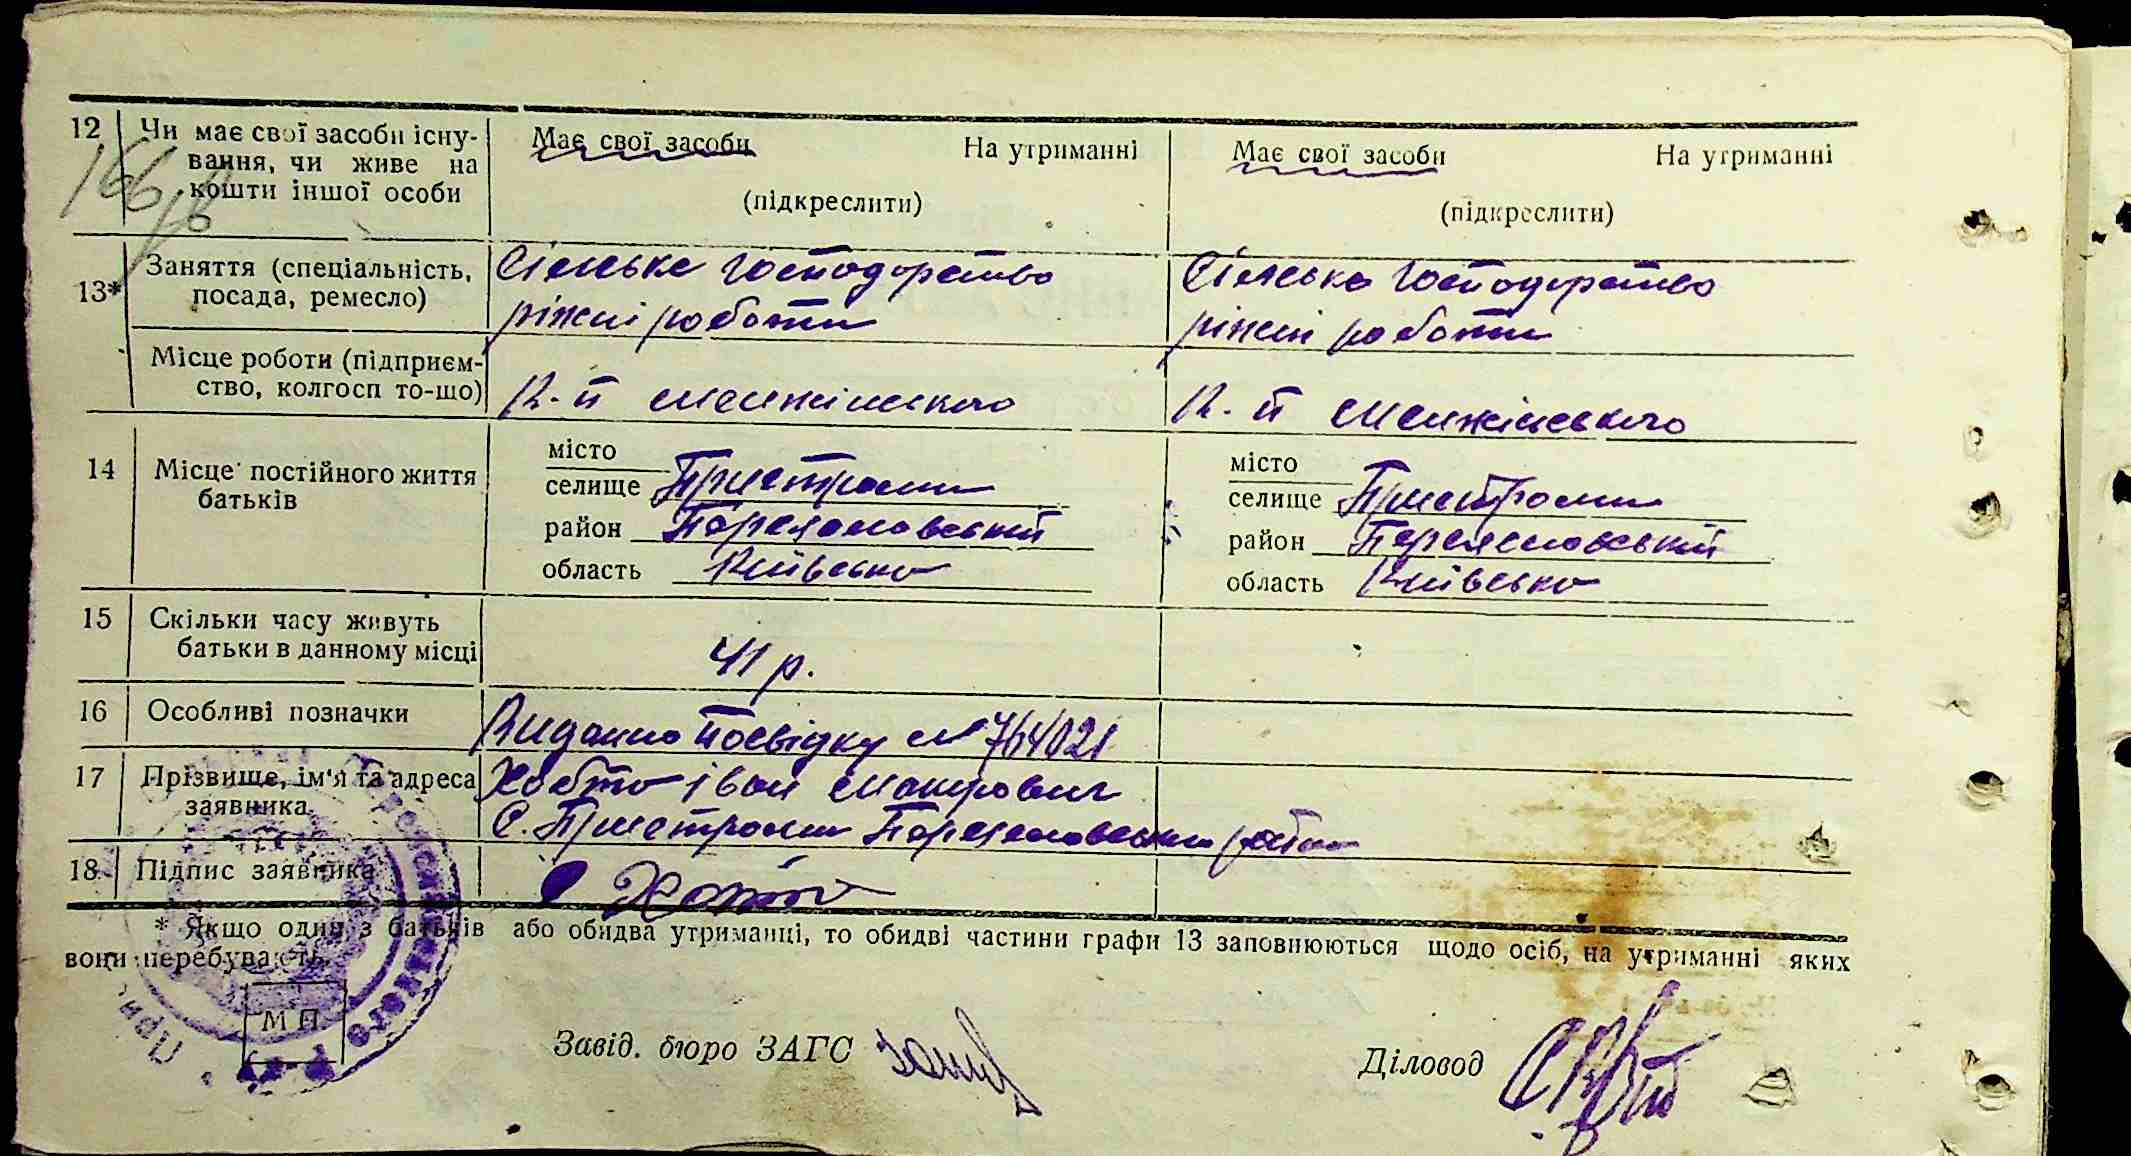 12 Чи має свої засоби існу- Має свої засоби На утриманні Має свої засоби На утриманні
вання, чи живе на
кошти іншої особи (підкреслити) (підкреслити)
166
13* Заняття (спеціальність, Сільське господарство Сільське господарство
посада, ремесло) ріжні роботи ріжні роботи
Місце роботи (підприєм-
ство, колгосп то-що) К-п Менжінського К-п Менжінського
14 Місце постійного життя місто місто
батьків селище Пристроми селище Пристроми
район Переяславський район Переяславський
область Київська область Київська
15 Скільки часу живуть
батьки в данному місці 41 р.
16 Особливі позначки Виданно посвідку № 764021
17 Прізвище, ім'я та адреса Хобта Іван Макарович
заявника С. Пристроми Переяславський район
18 Підпис заявника Хобта
* Якщо один з батьків або обидва утриманці, то обидві частини графи 13 заповнюються щодо осіб, на утриманні яких
вони перебувають.
М П
Завід. бюро ЗАГС
Діловод